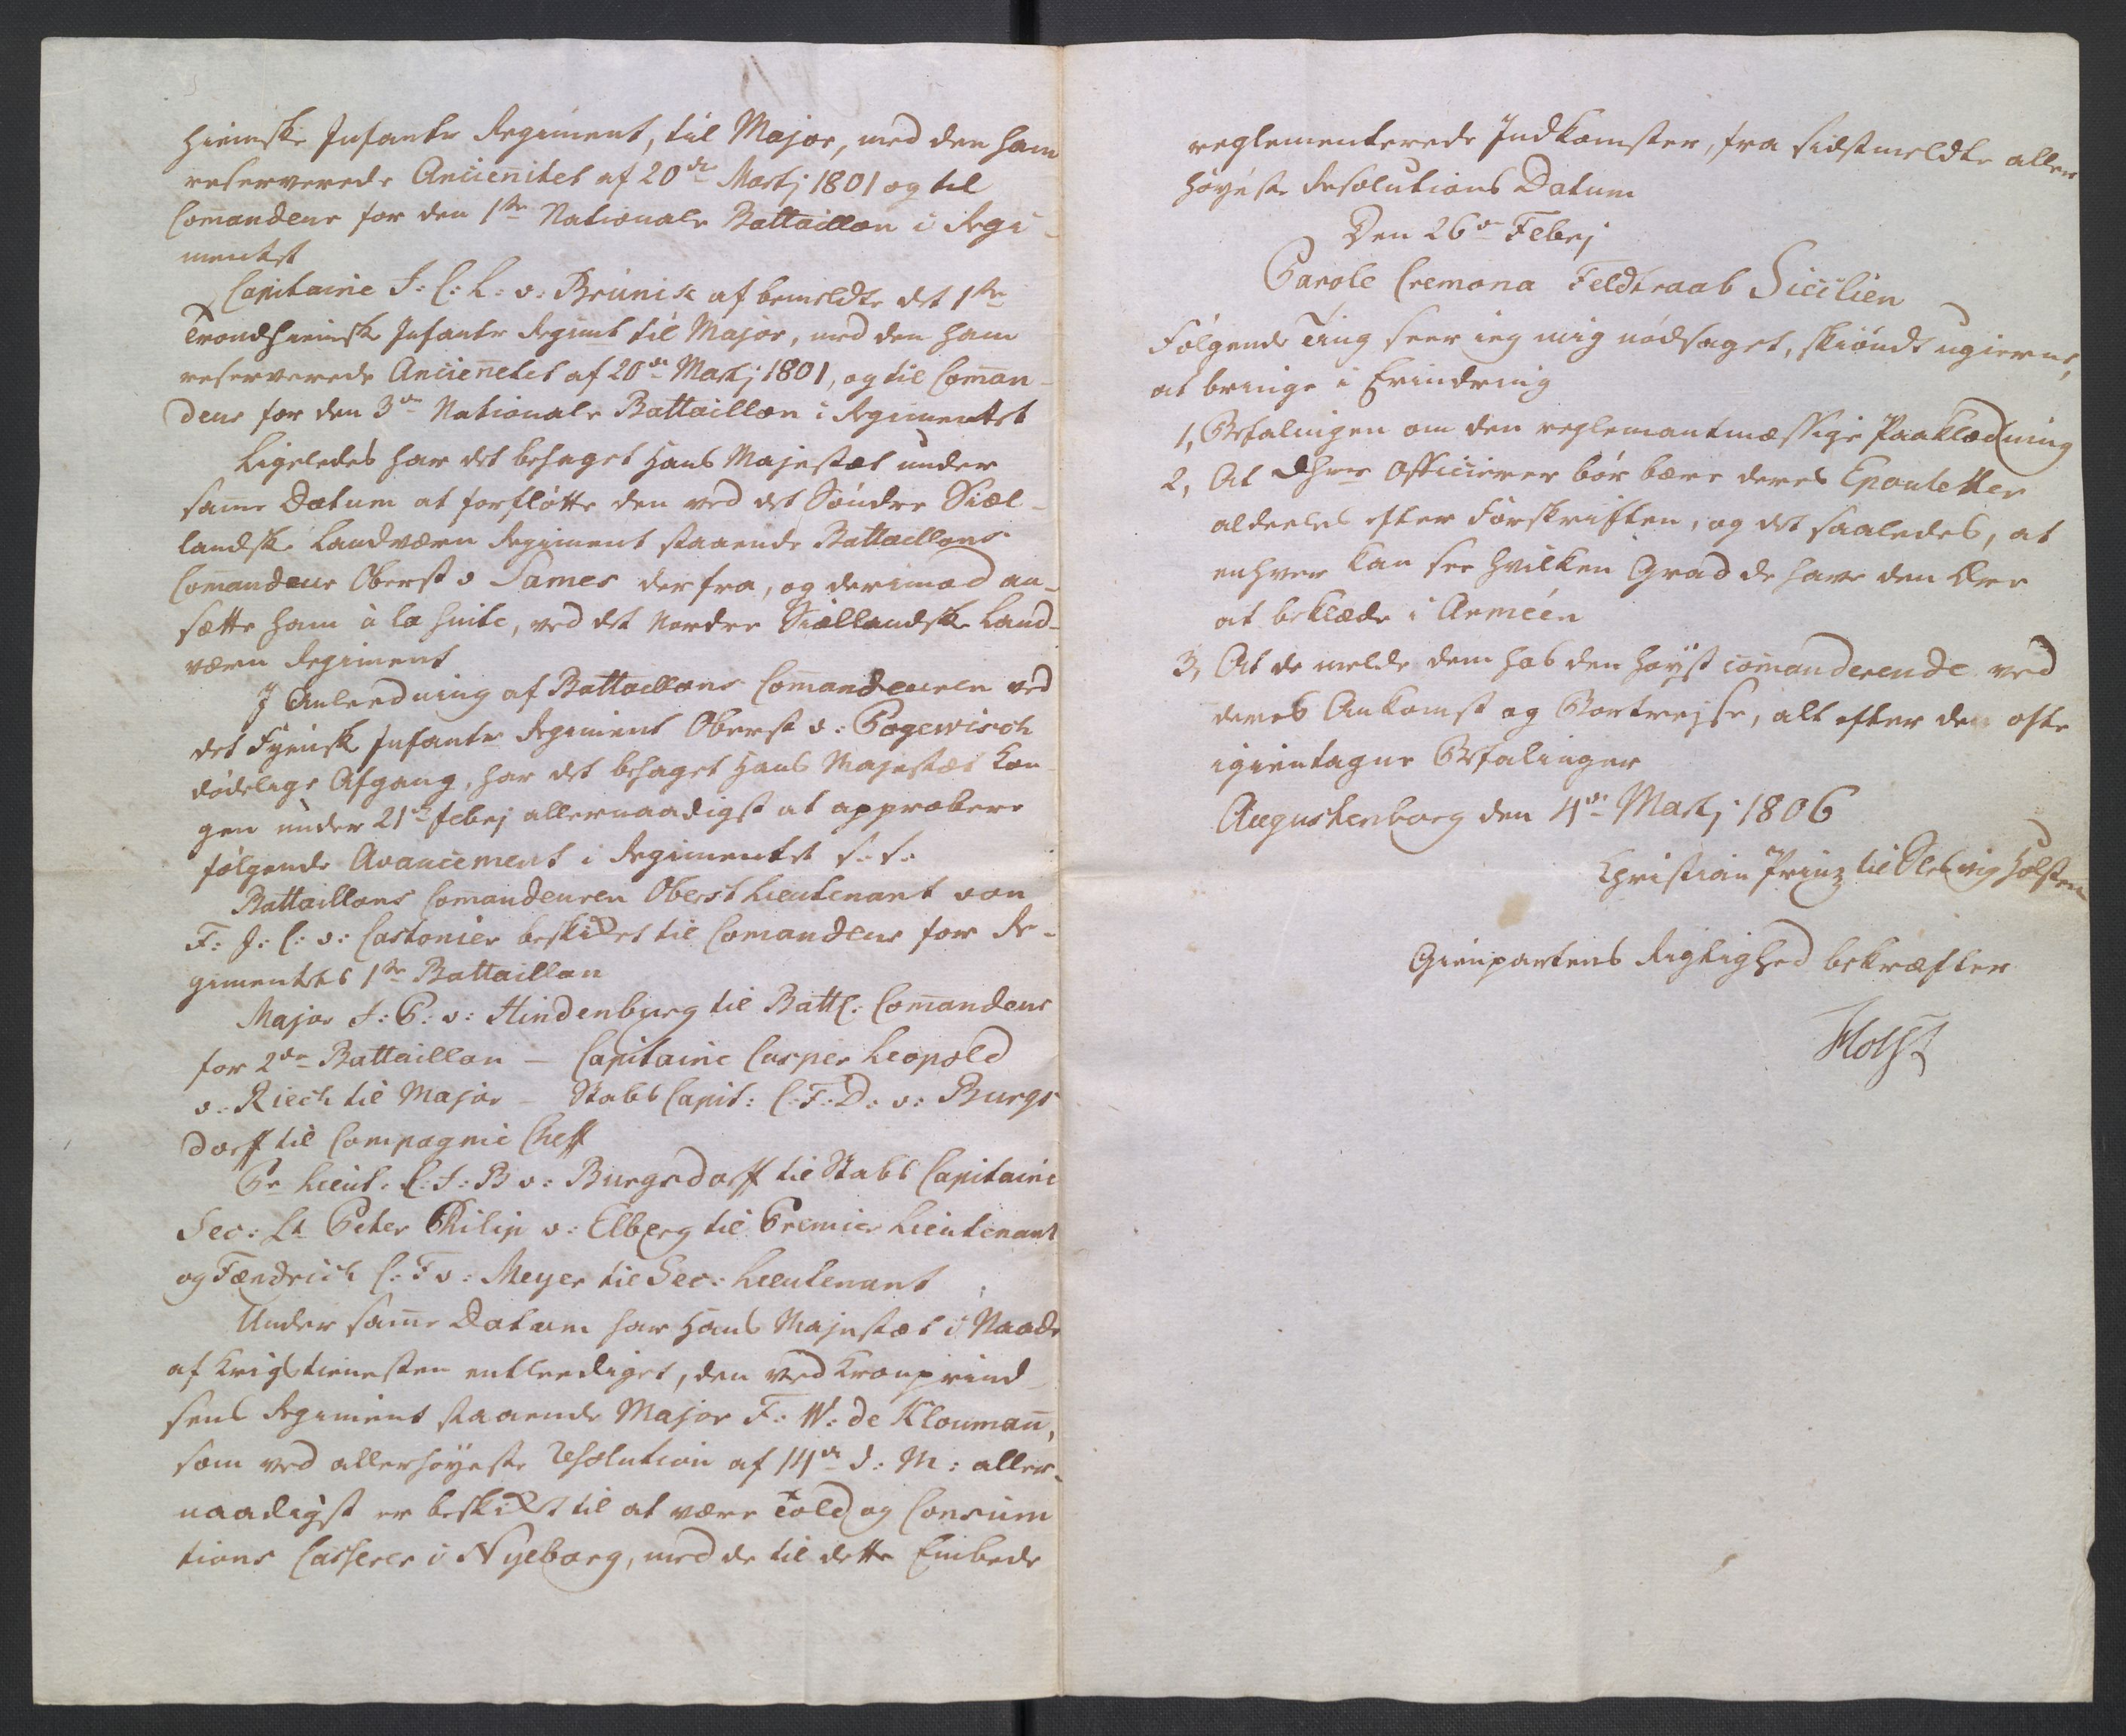 hiemske Infanterie Regiment, til Major, med den ham
reserverede Anciennitet af 20de Martj 1801 og til
Comandeur for den 1ste Nationale Battaillon i Regi-
mentet
Capitaine J: C: L: v: Brünisc af bemeldte det 1ste
Trondhiemsk Infante Regimt til Major, med den ham
reserverede Ancienetet af 20de Martj 1801, og til Coman-
deur for den 3de Nationale Battaillon i Regimentet
Ligeledes har det behaget Hans Majestæt under
same Datum at forfløtte den ved det Søndre Siæl-
landske Landværn Regiment staaende Battaillons
Comandeur Oberst v Sames derfra, og derimod an-
sætte ham à la Suite, ved det Nordre Siællandske Land-
værn Regiment
I Anledning af Battaillons Comandeuren ved
det Fyensk Infante Regiment Oberst v: Pogewisch
dødelige Afgang, har det behaget Hans Majestæt Kon
gen under 21de Febrj allernaadigst at approbere
følgende Avancement i Regimentet s. s.
Battaillons Comandeuren Oberst Lieutenant von
F: J: C: v: Castonier beskikket til Comandeur for Re-
gimentets 1ste Battaillon
Major J: P: v: Hindenburg til Battl: Comandeur
for 2den Battaillon – Capitaine Casper Leopold
v: Riech til Major – Stabs Capit: C: F: D: v: Burgs
dorff til Compagnie Cheff
Pr Lieut: C: J: B v: Burgsdorff til Stabs Capitaine
Sec: Lt Peter Philip v: Elberg til Premier Lieutenant
og Fændrich C: F v: Meyer til Sec: Lieutenant
Under same Datum har Hans Majestæt i Naade
af Krigstienesten entleediget, den ved Kronprind-
sens Regiment staaende Major F: W: de Kloumañ,
som ved allerhøyeste Resolution af 14de d: M: aller-
naadigst er beskikket til at være Told og Consum
tions Casserer i Nyeborg, med de til dette Embede
reglementerede Indkomster, fra sidstmeldte aller
høyeste Resolutions Datum
Den 26de Febrj
Parole Cremona Feldtraab Sicilien
Følgende Ting seer ieg mig nødsaget, skiøndt ugierne,
at bringe i Erindring
1, Befalingen om den reglemantmæssige Paaklædning
2, At Dhrr Officierer bør bære deres Epouletter
aldeeles efter Forskriften, og det saaledes, at
enhver kan see hvilken Grad de have den Ære
at beklæde i Armeén
3, At de melde dem hos den høyst comanderende ved
deres Ankomst og Bortrejse, alt efter den ofte
igientagne Befalinger
Augustenborg den 4de Martj 1806
Christian Prinz til Slesvig Holsten
Gienpartens Rigtighed bekræfter
Holst